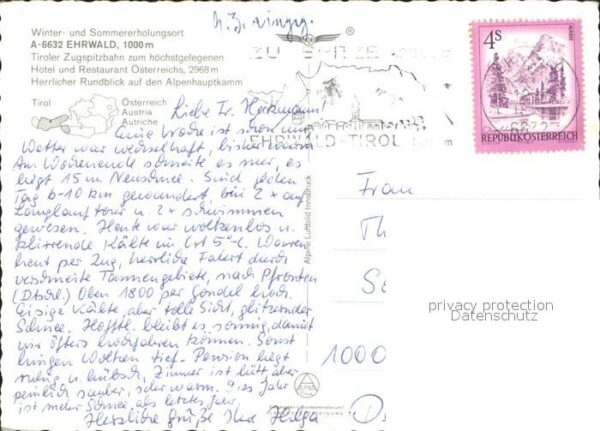 n.z. eingeg.
Winter- und Sommererholungsort
A-6632 EHRWALD, 1000 m
Tiroler Zugspitzbahn zum höchstgelegenen
Hotel und Restaurant Österreichs, 2968 m
Herrlicher Rundblick auf den Alpenhauptkamm
Tirol
Österreich
Austria
Autriche
EHRWALD-TIROL
4S
REPUBLIK ÖSTERREICH
Liebe Fr. Heckmann!
Eine Woche ist schon um,
Wetter war wechselhaft, bisher
Am Wochenende schneite es mer, es
liegt 15 cm Neuschnee. Sind jeden
Tag 6-10 km gewandert, bin 2 x auf
Langlauftour u. 2 x schwimmen
gewesen. Heute war wolkenlos u.
klirrende Kälte im Ort 5°-C. Waren
heut per Zug, herrliche Fahrt durch
verschneite Tannengebiete, nach Pfronten
(Dtschl.) Oben 1800 per Gondel hoch.
Eisige Kälte, aber tolle Sicht, glitzernder
Schnee. Hofftl. bleibt es sonnig, damit
wir öfters hochfahren können. Sonst
hingen Wolken tief. Pension liegt
ruhig u. hübsch, Zimmer ist nett, aber
peinlich sauber, sehr warm. Dies Jahr
ist mehr Schnee als letztes Jahr.
Herzliche Grüße Ihre Helga
Alpine Luftbild Innsbruck
Frau
Th
Se
1000
D
privacy protection
Datenschutz